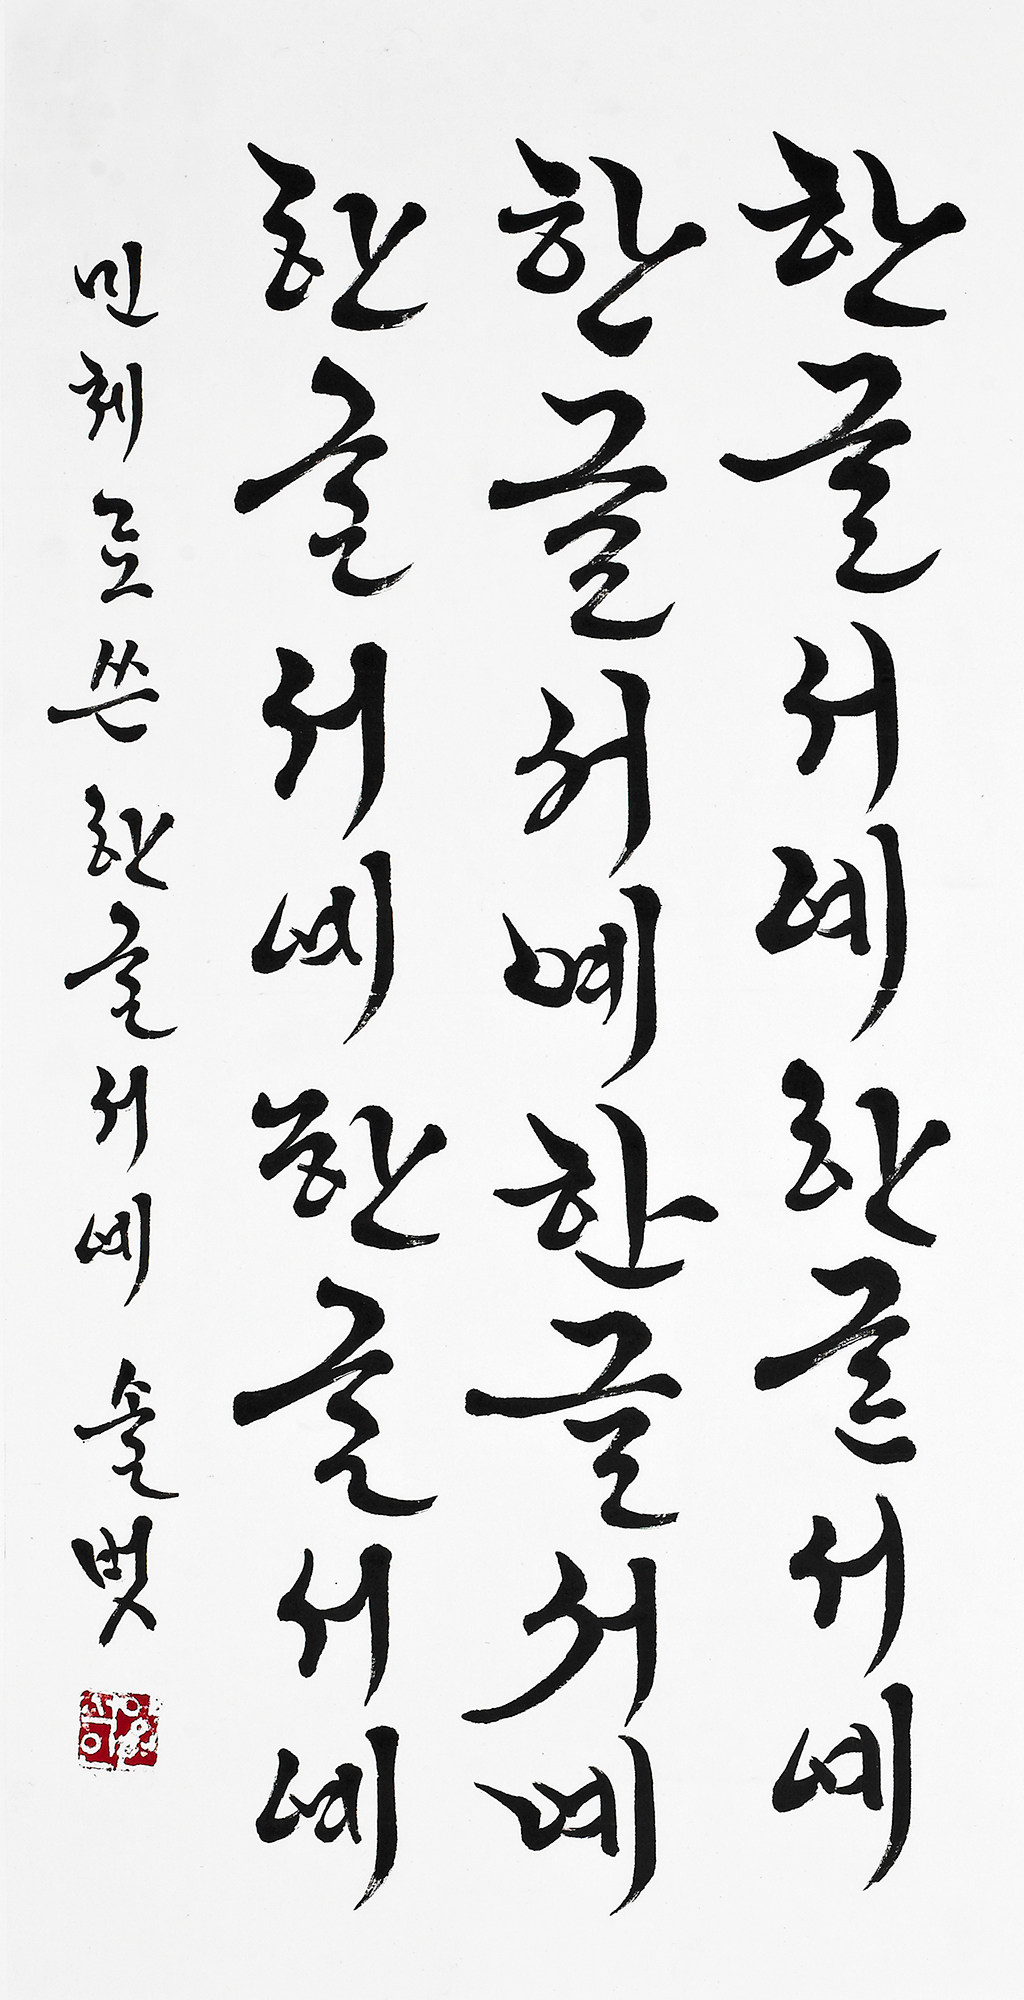 한글서예한글서예
한글서예한글서예
한글서예한글서예
민체로쓴 한글서예 솔벗